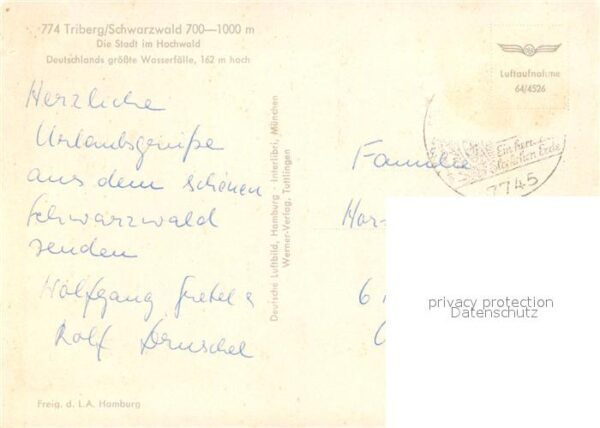 774 Triberg/Schwarzwald 700—1000 m
Die Stadt im Hochwald
Deutschlands größte Wasserfälle, 162 m hoch
Herzliche
Urlaubsgrüße
aus dem schönen
Schwarzwald
senden
Wolfgang Gretel &
Rolf
Freig. d. L.A. Hamburg
Deutsche Luftbild, Hamburg · Interlibri, München
Werner-Verlag, Tuttlingen
Luftaufnahme
64/4526
Ein
7745
Familie
Har-
6
privacy protection
Datenschutz